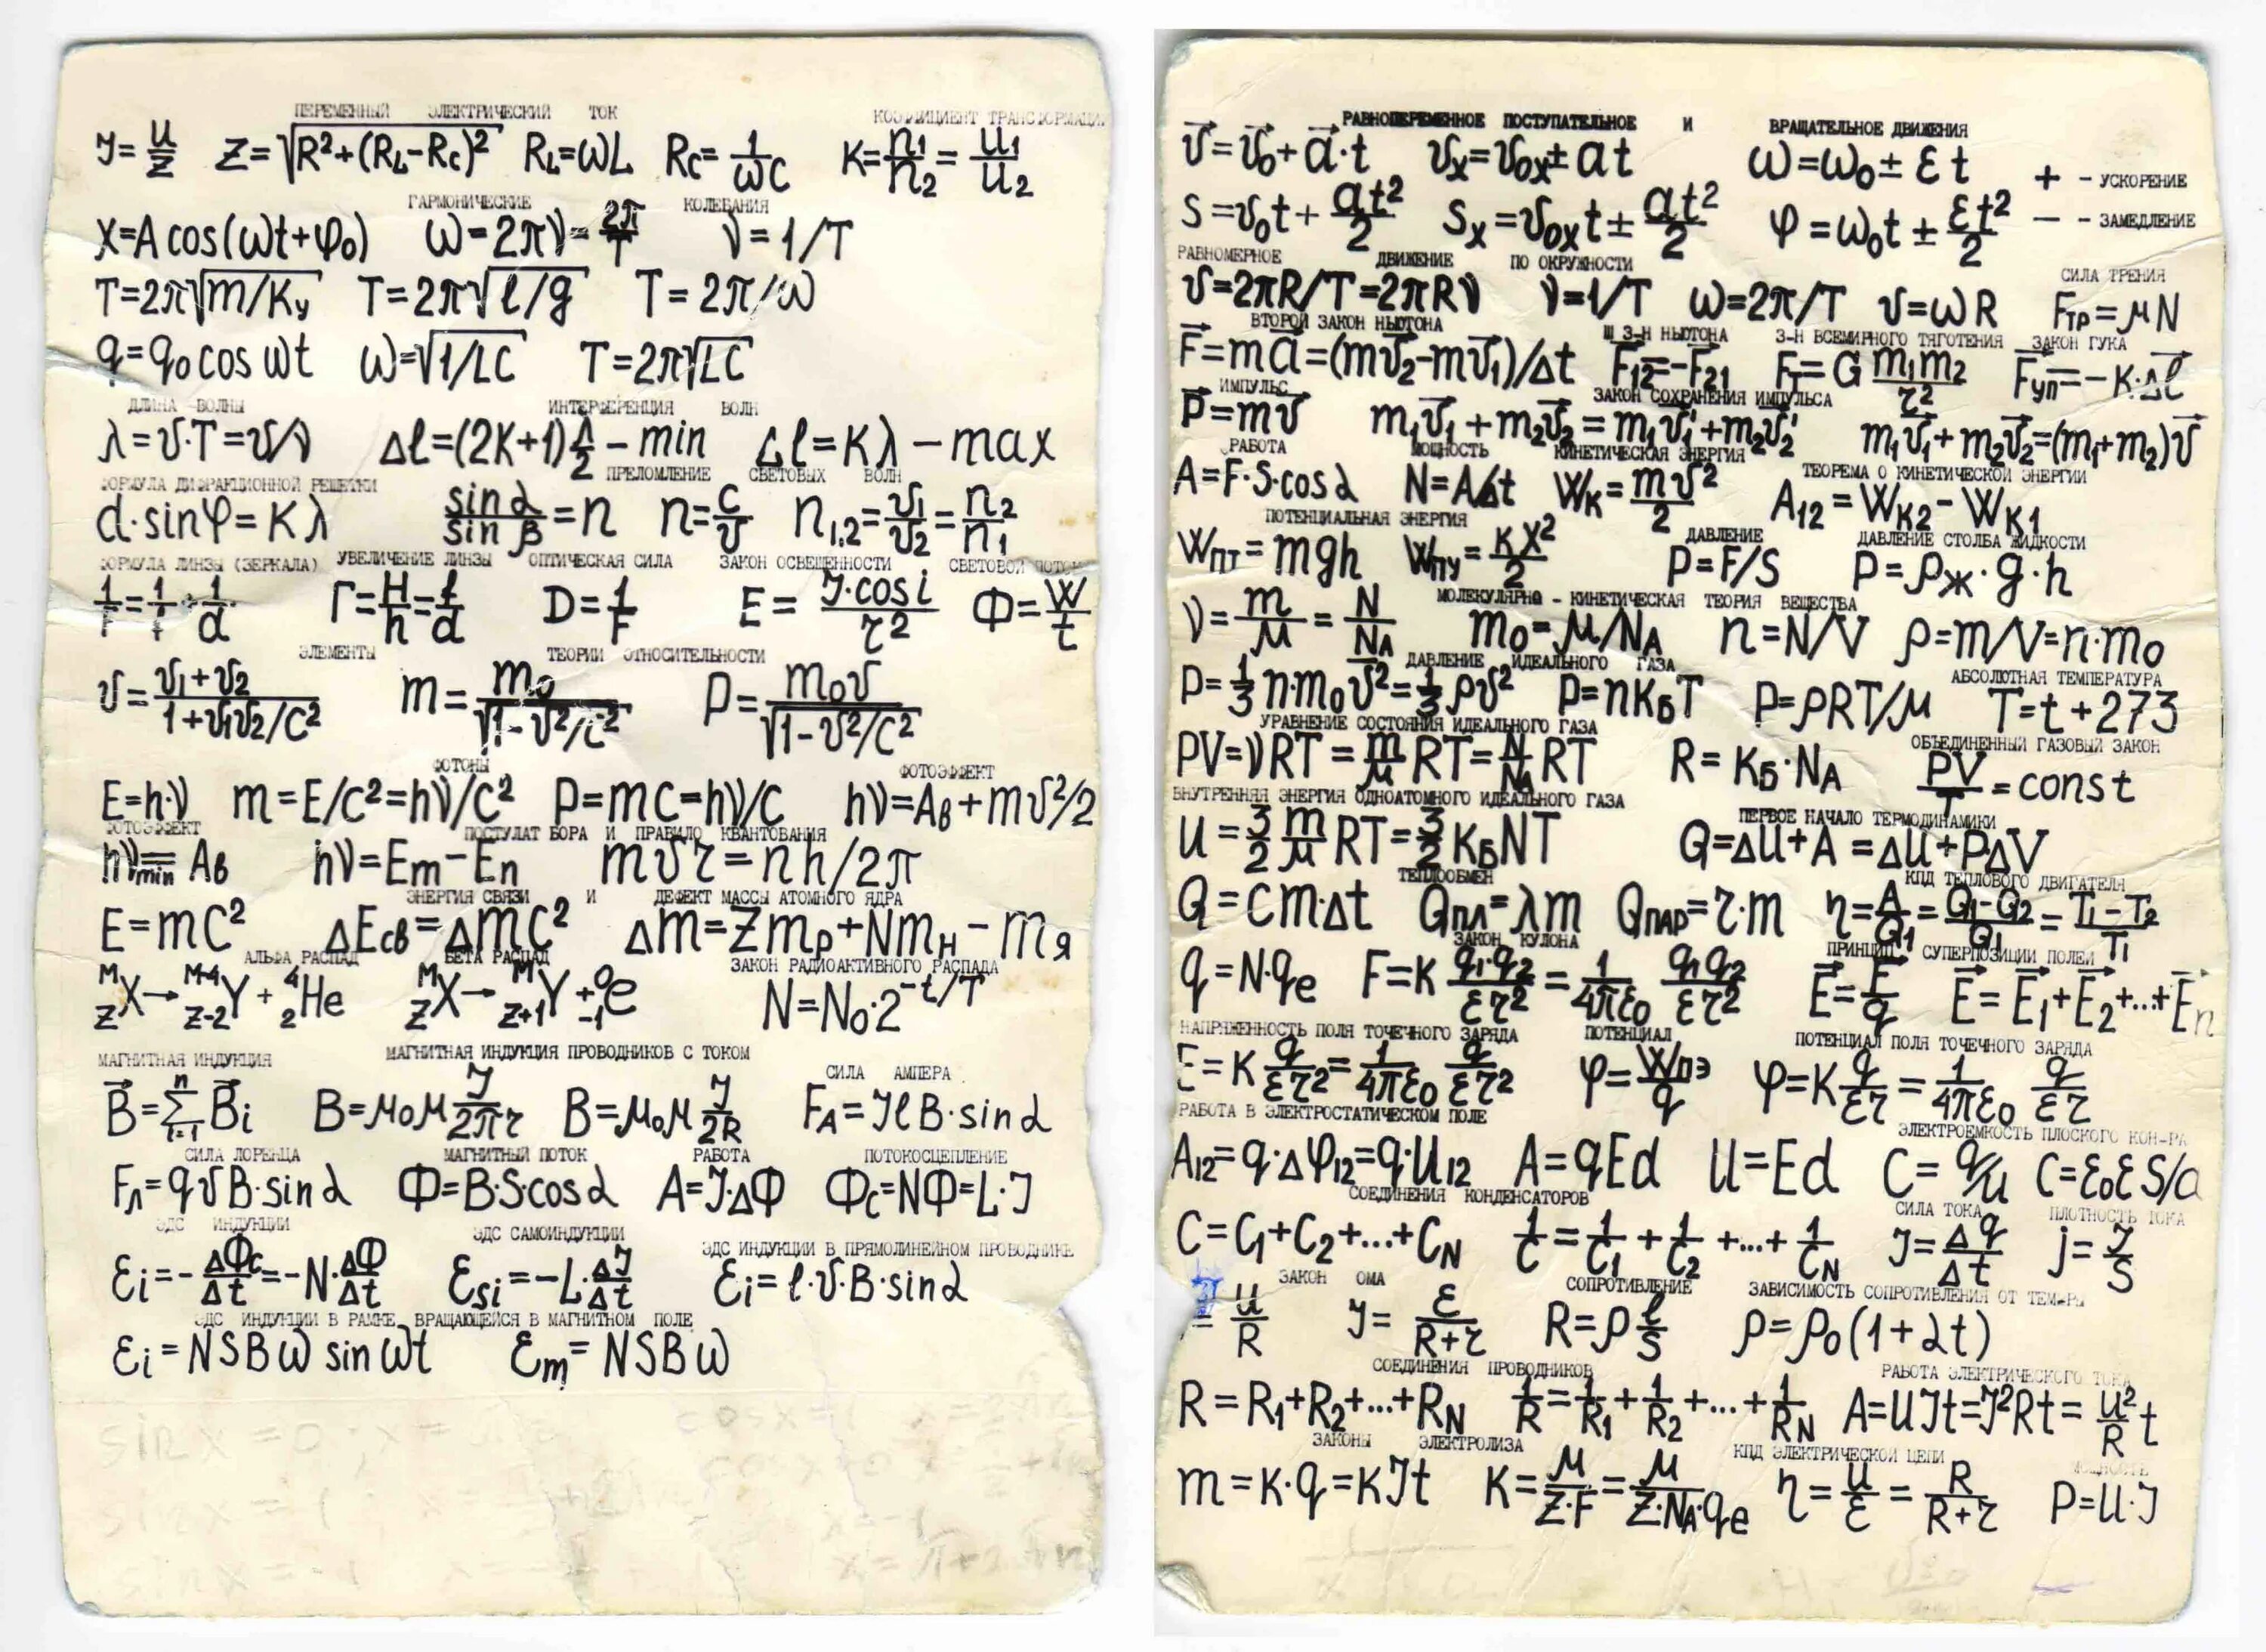 ПЕРЕМЕННЫЙ ЭЛЕКТРИЧЕСКИЙ ТОК КОЭФФИЦИЕНТ ТРАНСФОРМАЦИИ
J=U/Z Z=√(R²+(R_L-R_C)²) R_L=ωL R_C=1/ωC K=n₁/n₂=U₁/U₂
ГАРМОНИЧЕСКИЕ КОЛЕБАНИЯ
X=A cos(ωt+φ₀) ω=2πν=2π/T ν=1/T
T=2π√(m/Kу) T=2π√(l/g) T=2π/ω
q=q₀cos ωt ω=√(1/LC) T=2π√(LC)
ДЛИНА ВОЛНЫ ИНТЕРФЕРЕНЦИЯ ВОЛН
λ=υ·T=υ/ν Δl=(2K+1)λ/2-min Δl=Kλ-max
ФОРМУЛА ДИФРАКЦИОННОЙ РЕШЕТКИ ПРЕЛОМЛЕНИЕ СВЕТОВЫХ ВОЛН
d·sinφ=Kλ sinα/sinβ=n n=c/υ n₁,₂=υ₁/υ₂=n₂/n₁
ФОРМУЛА ЛИНЗЫ (ЗЕРКАЛА) УВЕЛИЧЕНИЕ ЛИНЗЫ ОПТИЧЕСКАЯ СИЛА ЗАКОН ОСВЕЩЕННОСТИ СВЕТОВОЙ ПОТОК
1/F=1/f+1/d Г=H/h=f/d D=1/F E=J·cos i/r² Ф=W/t
ЭЛЕМЕНТЫ ТЕОРИИ ОТНОСИТЕЛЬНОСТИ
υ=(υ₁+υ₂)/(1+υ₁υ₂/C²) m=m₀/√(1-υ²/c²) p=m₀υ/√(1-υ²/C²)
ФОТОНЫ ФОТОЭФФЕКТ
E=h·ν m=E/C²=hν/C² p=mC=hν/C hν=Aв+mυ²/2
ФОТОЭФФЕКТ ПОСТУЛАТ БОРА И ПРАВИЛО КВАНТОВАНИЯ
hν_min=Aв hν=Em-En mυr=nh/2π
ЭНЕРГИЯ СВЯЗИ И ДЕФЕКТ МАССЫ АТОМНОГО ЯДРА
E=mC² ΔEсв=ΔmC² Δm=Zmp+Nmн-mя
АЛЬФА РАСПАД БЕТА РАСПАД ЗАКОН РАДИОАКТИВНОГО РАСПАДА
ᴹ_Z X→ᴹ⁻⁴_Z-2 Y+⁴₂He ᴹ_Z X→ᴹ_Z+1 Y+⁰₋₁e N=N₀·2^(-t/T)
МАГНИТНАЯ ИНДУКЦИЯ МАГНИТНАЯ ИНДУКЦИЯ ПРОВОДНИКОВ С ТОКОМ СИЛА АМПЕРА
B⃗=Σⁿᵢ₌₁B⃗i B=μ₀μ J/2πr B=μ₀μ J/2R F_A=JlB·sinα
СИЛА ЛОРЕНЦА МАГНИТНЫЙ ПОТОК РАБОТА ПОТОКОСЦЕПЛЕНИЕ
Fл=qυB·sinα Ф=B·S·cosα A=J·ΔФ Фc=NФ=L·J
ЭДС ИНДУКЦИИ ЭДС САМОИНДУКЦИИ ЭДС ИНДУКЦИИ В ПРЯМОЛИНЕЙНОМ ПРОВОДНИКЕ
Ɛi=-ΔФc/Δt=-N·ΔФ/Δt Ɛsi=-L·ΔJ/Δt Ɛi=l·υ·B·sinα
ЭДС ИНДУКЦИИ В РАМКЕ, ВРАЩАЮЩЕЙСЯ В МАГНИТНОМ ПОЛЕ
Ɛi=NSBω sin ωt Ɛm=NSBω
РАВНОПЕРЕМЕННОЕ ПОСТУПАТЕЛЬНОЕ И ВРАЩАТЕЛЬНОЕ ДВИЖЕНИЯ
υ⃗=υ⃗₀+a⃗·t υx=υ₀x±at ω=ω₀±εt + - УСКОРЕНИЕ
S=υ₀t+at²/2 Sx=υ₀xt±at²/2 φ=ω₀t±εt²/2 — - ЗАМЕДЛЕНИЕ
РАВНОМЕРНОЕ ДВИЖЕНИЕ ПО ОКРУЖНОСТИ СИЛА ТРЕНИЯ
υ=2πR/T=2πRν ν=1/T ω=2π/T υ=ωR Fтр=μN
ВТОРОЙ ЗАКОН НЬЮТОНА Ш З-Н НЬЮТОНА З-Н ВСЕМИРНОГО ТЯГОТЕНИЯ ЗАКОН ГУКА
F⃗=ma⃗=(mυ⃗₂-mυ⃗₁)/Δt F⃗₁₂=-F⃗₂₁ Fт=G m₁m₂/r² F⃗уп=-K·Δl⃗
ИМПУЛЬС ЗАКОН СОХРАНЕНИЯ ИМПУЛЬСА
P⃗=mυ⃗ m₁υ⃗₁+m₂υ⃗₂=m₁υ⃗₁'+m₂υ⃗₂' m₁υ⃗₁+m₂υ⃗₂=(m₁+m₂)υ⃗
РАБОТА МОЩНОСТЬ КИНЕТИЧЕСКАЯ ЭНЕРГИЯ ТЕОРЕМА О КИНЕТИЧЕСКОЙ ЭНЕРГИИ
A=F·S·cosα N=A/Δt Wк=mυ²/2 A₁₂=Wк2-Wк1
ПОТЕНЦИАЛЬНАЯ ЭНЕРГИЯ ДАВЛЕНИЕ ДАВЛЕНИЕ СТОЛБА ЖИДКОСТИ
Wпт=mgh Wпу=KX²/2 P=F/S P=ρж·g·h
МОЛЕКУЛЯРНО - КИНЕТИЧЕСКАЯ ТЕОРИЯ ВЕЩЕСТВА
ν=m/μ=N/N_A m₀=μ/N_A n=N/V ρ=m/V=n·m₀
ДАВЛЕНИЕ ИДЕАЛЬНОГО ГАЗА АБСОЛЮТНАЯ ТЕМПЕРАТУРА
P=1/3 n·m₀υ̅²=1/3 ρυ² P=nKбT P=ρRT/μ T=t+273
УРАВНЕНИЕ СОСТОЯНИЯ ИДЕАЛЬНОГО ГАЗА ОБЪЕДИНЕННЫЙ ГАЗОВЫЙ ЗАКОН
PV=νRT=m/μ RT=N/N_A RT R=Kб·N_A PV/T=const
ВНУТРЕННЯЯ ЭНЕРГИЯ ОДНОАТОМНОГО ИДЕАЛЬНОГО ГАЗА ПЕРВОЕ НАЧАЛО ТЕРМОДИНАМИКИ
U=3/2 m/μ RT=3/2 KбNT Q=ΔU+A=ΔU+PΔV
ТЕПЛООБМЕН КПД ТЕПЛОВОГО ДВИГАТЕЛЯ
Q=Cm·Δt Qпл=λm Qпар=r·m η=A/Q₁=(Q₁-Q₂)/Q₁=(T₁-T₂)/T₁
ЗАКОН КУЛОНА ПРИНЦИП СУПЕРПОЗИЦИИ ПОЛЕЙ
q=N·qe F=K q₁·q₂/εr²=1/4πε₀ q₁q₂/εr² E⃗=F⃗/q E⃗=E⃗₁+E⃗₂+...+E⃗n
НАПРЯЖЕННОСТЬ ПОЛЯ ТОЧЕЧНОГО ЗАРЯДА ПОТЕНЦИАЛ ПОТЕНЦИАЛ ПОЛЯ ТОЧЕЧНОГО ЗАРЯДА
E=K q/εr²=1/4πε₀ q/εr² φ=Wпэ/q φ=K q/εr=1/4πε₀ q/εr
РАБОТА В ЭЛЕКТРОСТАТИЧЕСКОМ ПОЛЕ ЭЛЕКТРОЕМКОСТЬ ПЛОСКОГО КОН-РА
A₁₂=q·Δφ₁₂=q·U₁₂ A=qEd U=Ed C=q/U C=ε₀εS/d
СОЕДИНЕНИЯ КОНДЕНСАТОРОВ СИЛА ТОКА ПЛОТНОСТЬ ТОКА
C=C₁+C₂+...+C_N 1/C=1/C₁+1/C₂+...+1/C_N J=Δq/Δt j=J/S
ЗАКОН ОМА СОПРОТИВЛЕНИЕ ЗАВИСИМОСТЬ СОПРОТИВЛЕНИЯ ОТ ТЕМ-РЫ
=U/R J=Ɛ/(R+r) R=ρ l/S ρ=ρ₀(1+αt)
СОЕДИНЕНИЯ ПРОВОДНИКОВ РАБОТА ЭЛЕКТРИЧЕСКОГО ТОКА
R=R₁+R₂+...+R_N 1/R=1/R₁+1/R₂+...+1/R_N A=UJt=J²Rt=U²/R t
ЗАКОНЫ ЭЛЕКТРОЛИЗА КПД ЭЛЕКТРИЧЕСКОЙ ЦЕПИ МОЩНОСТЬ
m=K·q=KJt K=μ/Z·F=μ/Z·N_A·qe η=U/Ɛ=R/(R+r) P=U·J